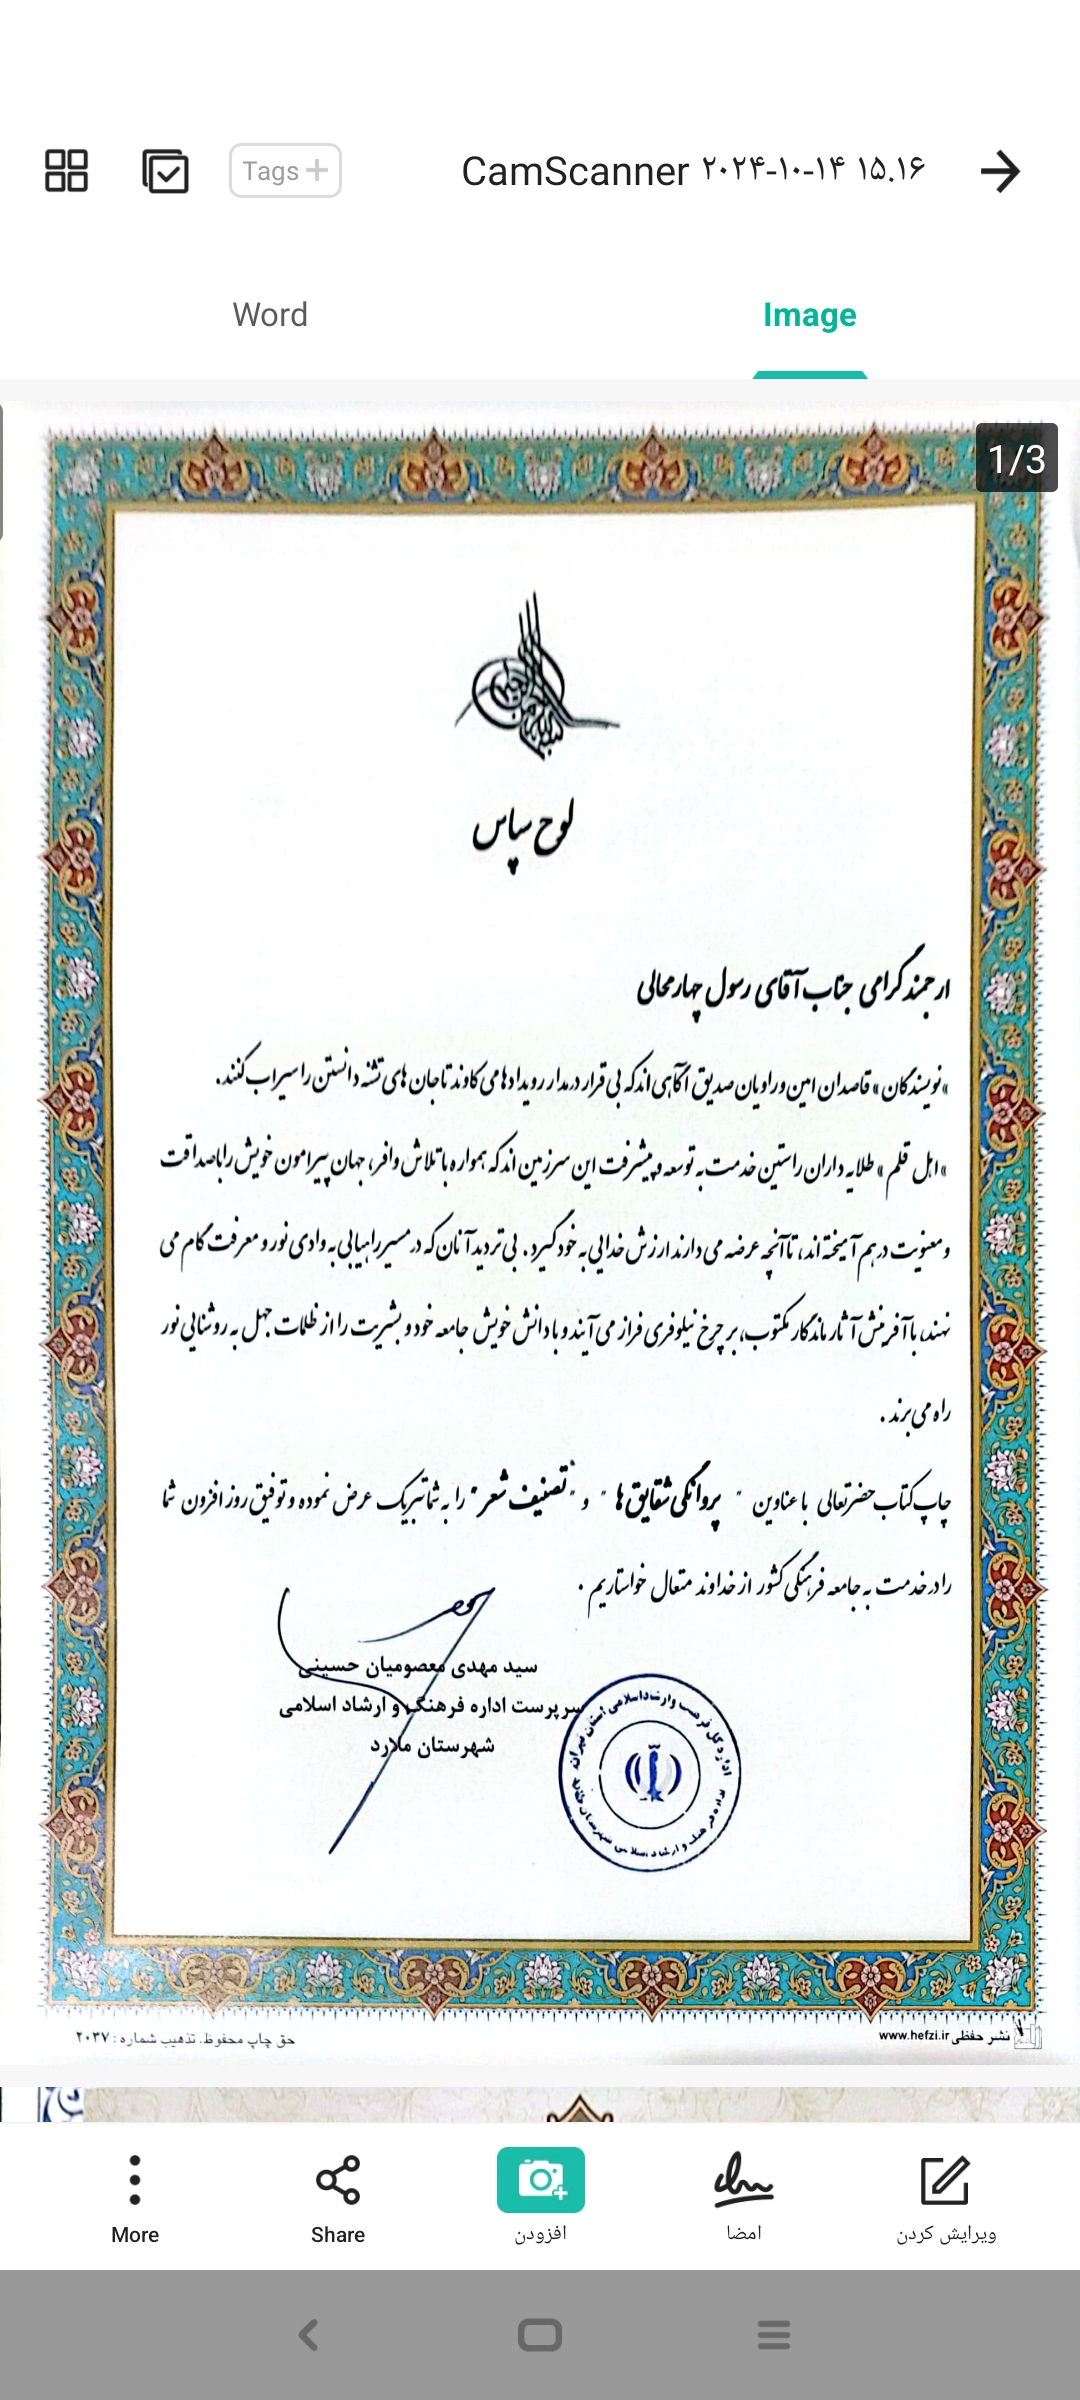 Tags +
CamScanner ۲۰۲۴-۱۰-۱۴ ۱۵.۱۶
Word
Image
1/3
لوح سپاس
ارجمند گرامی جناب آقای رسول چهارمحالی
«نویسندگان» قاصدان امین و راویان صدیق آگاهی اند که بی قرار در مدار رویدادها می کاوند تا جان های تشنه دانستن را سیراب کنند.
«اهل قلم» طلایه داران راستین خدمت به توسعه و پیشرفت این سرزمین اند که همواره با تلاش وافر، جهان پیرامون خویش را با صداقت
و معنویت در هم آمیخته اند، تا آنچه عرضه می دارند ارزش خدایی به خود گیرد. بی تردید آنان که در مسیر راهیابی به وادی نور و معرفت گام می
نهند، با آفرینش آثار ماندگار مکتوب، بر چرخ نیلوفری فراز می آیند و با دانش خویش جامعه خود و بشریت را از ظلمات جهل به روشنایی نور
راه می برند.
چاپ کتاب حضرتعالی با عناوین " پروانگی شقایق ها " و "تصنیف شعر" را به شما تبریک عرض نموده و توفیق روز افزون شما
را در خدمت به جامعه فرهنگی کشور از خداوند متعال خواستاریم.
سید مهدی معصومیان حسینی
سرپرست اداره فرهنگ و ارشاد اسلامی
شهرستان ملارد
اداره کل فرهنگ و ارشاد اسلامی استان تهران
حق چاپ محفوظ. تذهیب شماره : ۲۰۳۷
نشر حفظی www.hefzi.ir
More
Share
افزودن
امضا
ویرایش کردن